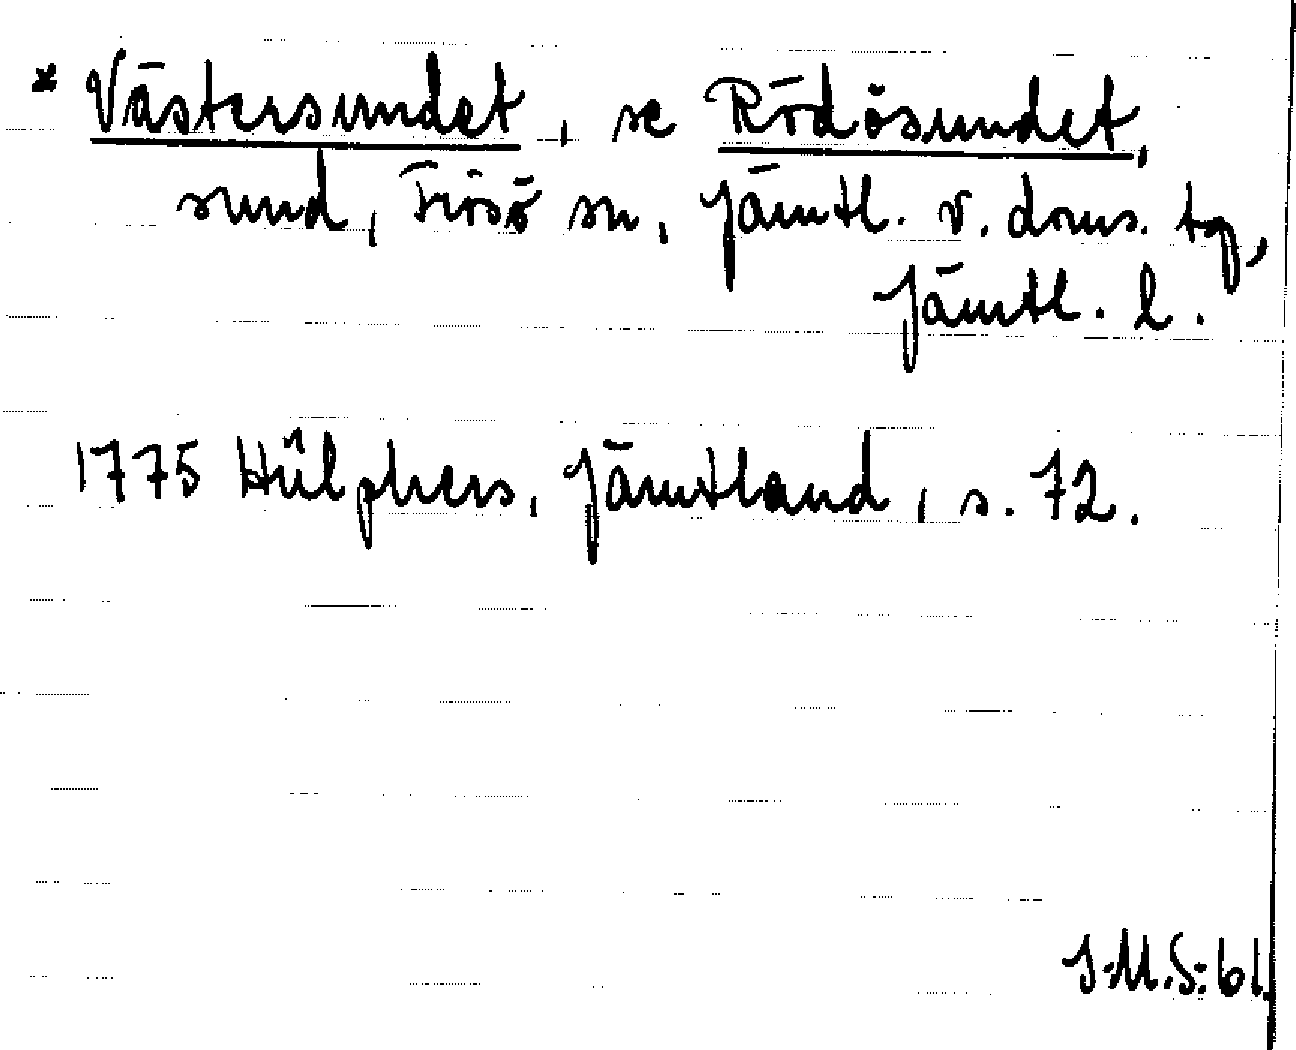 * Västersundet, se Rödösundet,
sund, Frösö sn, Jämtl. v. doms. tg,
Jämtl. l.
1775 Hülphers, Jämtland, s. 72.
J.M.S. 61.